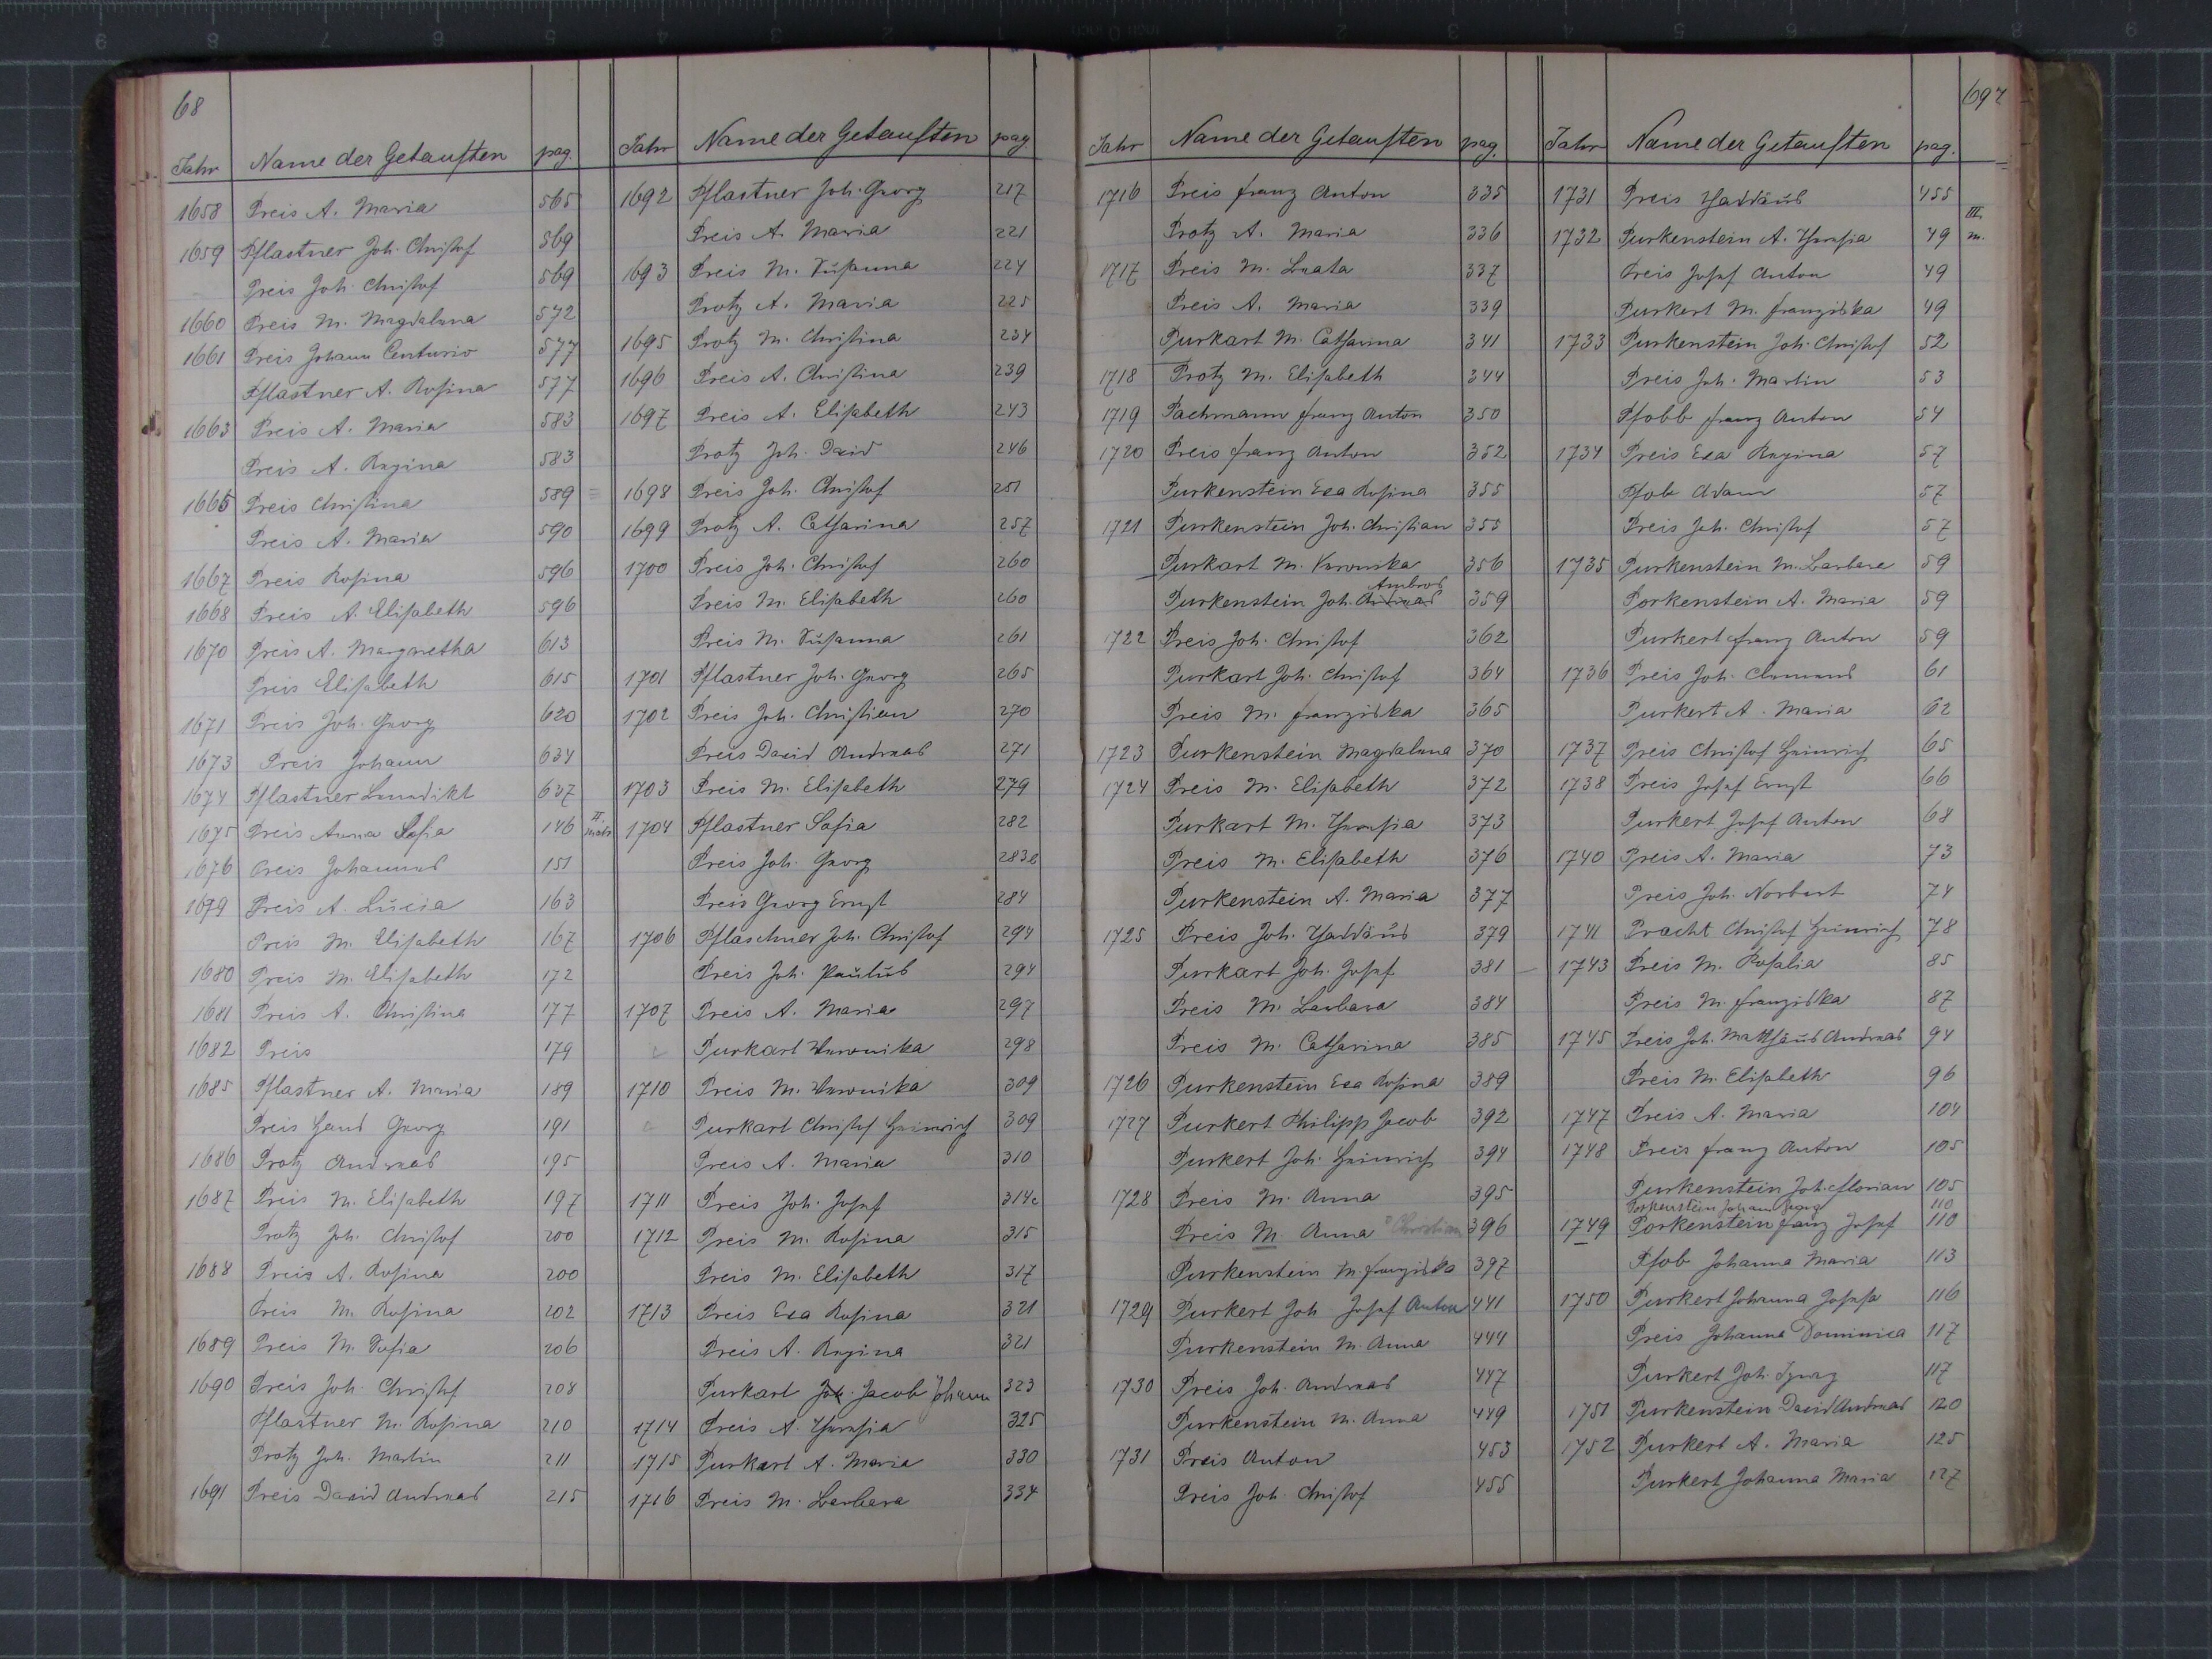 68
Jahr Name der Getauften pag.
1658 Preis A. Maria 565
1659 Pflastner Joh. Christof 569
Preis Joh. Christof 569
1660 Preis M. Magdalena 572
1661 Preis Johann Centurio 577
Pflastner A. Rosina 577
1663 Preis A. Maria 583
Preis A. Regina 583
1665 Preis Christina 589
Preis A. Maria 590
1667 Preis Rosina 596
1668 Preis A. Elisabeth 596
1670 Preis A. Margaretha 613
Preis Elisabeth 615
1671 Preis Joh. Georg 620
1673 Preis Johann 634
1674 Pflastner Benedikt 637
1675 Preis Anna Sofia 146 II
1676 Preis Johannes 151
1679 Preis A. Lucia 163
Preis M. Elisabeth 167
1680 Preis M. Elisabeth 172
1681 Preis A. Christina 177
1682 Preis 179
1685 Pflastner A. Maria 189
Preis Hans Georg 191
1686 Protz Andreas 195
1687 Preis M. Elisabeth 197
Protz Joh. Christof 200
1688 Preis A. Rosina 200
Preis M. Rosina 202
1689 Preis M. Sofia 206
1690 Preis Joh. Christof 208
Pflastner M. Rosina 210
Protz Joh. Martin 211
1691 Preis David Andreas 215
Jahr Name der Getauften pag
1692 Pflastner Joh. Georg 217
Preis A. Maria 221
1693 Preis M. Susanna 224
Protz A. Maria 225
1695 Protz M. Christina 234
1696 Preis A. Christina 239
1697 Preis A. Elisabeth 243
Protz Joh. David 246
1698 Preis Joh. Christof 251
1699 Protz A. Catharina 257
1700 Preis Joh. Christof 260
Preis M. Elisabeth 260
Preis M. Susanna 261
1701 Pflastner Joh. Georg 265
1702 Preis Joh. Christian 270
Preis David Andreas 271
1703 Preis M. Elisabeth 279
1704 Pflastner Sofia 282
Preis Joh. Georg 283
Preis Georg Ernst 284
1706 Pflaschner Joh. Christof 294
Preis Joh. Paulus 294
1707 Preis A. Maria 297
Purkart Veronika 298
1710 Preis M. Veronika 309
Purkart Christof Heinrich 309
Preis A. Maria 310
1711 Preis Joh. Josef 314c
1712 Preis M. Rosina 315
Preis M. Elisabeth 317
1713 Preis Eva Rosina 321
Preis A. Regina 321
Purkart Joh. Jacob Johann 323
1714 Preis A. Theresia 325
1715 Purkart A. Maria 330
1716 Preis M. Barbara 334
Jahr Name der Getauften pag.
1716 Preis Franz Anton 335
Protz A. Maria 336
1717 Preis M. Beata 337
Preis A. Maria 339
Purkart M. Catharina 341
1718 Protz M. Elisabeth 344
1719 Pachmann Franz Anton 350
1720 Preis Franz Anton 352
Purkenstein Eva Rosina 355
1721 Purkenstein Joh. Christian 355
Purkart M. Veronika 356
Ambros
Purkenstein Joh. Andreas 359
1722 Preis Joh. Christof 362
Purkart Joh. Christof 364
Preis M. Franziska 365
1723 Purkenstein Magdalena 370
1724 Preis M. Elisabeth 372
Purkart M. Theresia 373
Preis M. Elisabeth 376
Purkenstein A. Maria 377
1725 Preis Joh. Thaddäus 379
Purkart Joh. Josef 381
Preis M. Barbara 384
Preis M. Catharina 385
1726 Purkenstein Eva Rosina 389
1727 Purkert Philipp Jacob 392
Purkert Joh. Heinrich 394
1728 Preis M. Anna 395
Preis M. Anna Christina 396
Purkenstein M. Franziska 397
1729 Purkert Joh. Josef Anton 441
Purkenstein M. Anna 444
1730 Preis Joh. Andreas 447
Purkenstein M. Anna 449
1731 Preis Anton 453
Preis Joh. Christof 455
69
Jahr Name der Getauften pag.
1731 Preis Thaddäus 455
1732 Purkenstein A. Theresia 49 III. m.
Preis Josef Anton 49
Purkert M. Franziska 49
1733 Purkenstein Joh. Christof 52
Preis Joh. Martin 53
Pfobb Franz Anton 54
1734 Preis Eva Regina 57
Pfob Adam 57
Preis Joh. Christof 57
1735 Purkenstein M. Barbara 59
Porkenstein A. Maria 59
Purkert Franz Anton 59
1736 Preis Joh. Clemens 61
Purkert A. Maria 62
1737 Preis Christof Heinrich 65
1738 Preis Josef Ernst 66
Purkert Josef Anton 68
1740 Preis A. Maria 73
Preis Joh. Norbert 74
1741 Pracht Christof Heinrich 78
1743 Preis M. Rosalia 85
Preis M. Franziska 87
1745 Preis Joh. Matthäus Andreas 94
Preis M. Elisabeth 96
1747 Preis A. Maria 104
1748 Preis Franz Anton 105
Purkenstein Joh. Florian 105
Porkenstein Johann Georg 110
1749 Porkenstein Franz Josef 110
Pfob Johanna Maria 113
1750 Purkert Johanna Josefa 116
Preis Johanna Dominica 117
Purkert Joh. Ignaz 117
1751 Purkenstein David Andreas 120
1752 Purkert A. Maria 125
Purkert Johanna Maria 127